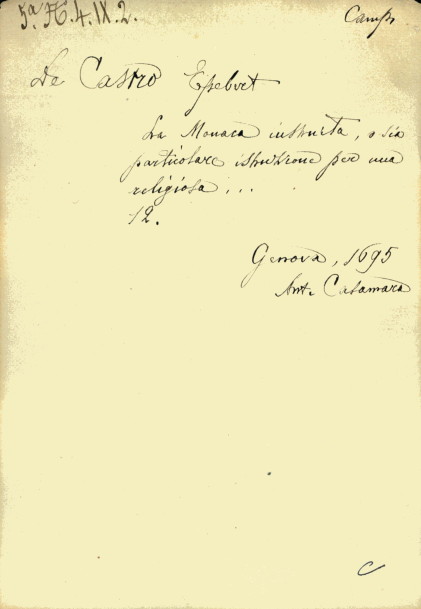 5ª A.4.IX.2.
Camp.
De Castro Egebert
La Monaca instruita, o sia
particolare istruzione per una
religiosa...
12.
Genova, 1695
Ant. Casamara
C